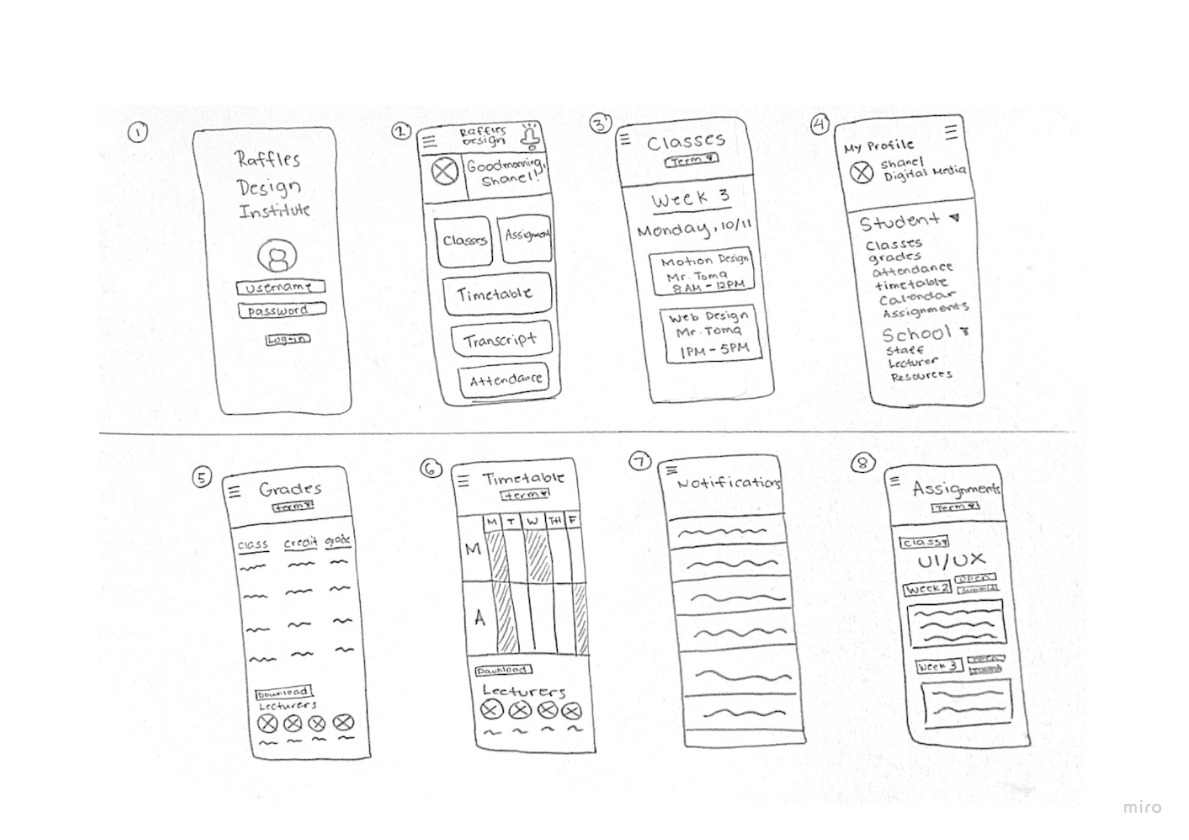 1
Raffles
Design
Institute
username
password
Login
2
Raffles
Design
Goodmorning,
Shanel!
Classes
Assignment
Timetable
Transcript
Attendance
3
Classes
Term
Week 3
Monday, 10/11
Motion Design
Mr. Toma
8AM - 12PM
Web Design
Mr. Toma
1PM - 5PM
4
My Profile
Shanel
Digital Media
Student
Classes
grades
attendance
timetable
Calendar
Assignments
School
Staff
Lecturer
Resources
5
Grades
term
class credit grade
Download
Lecturers
6
Timetable
term
M T W TH F
M
A
Download
Lecturers
7
Notifications
8
Assignments
Term
Class
UI/UX
Week 2
open
submit
Week 3
open
miro